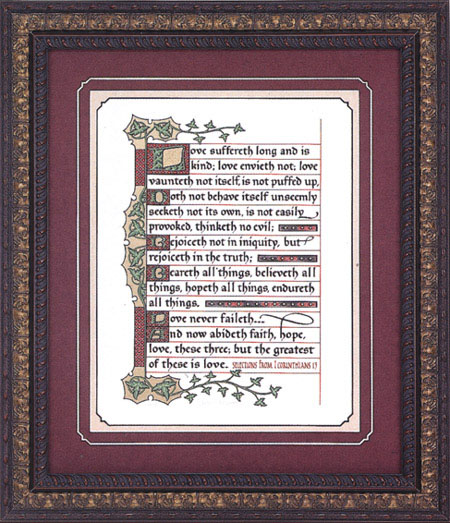 Love suffereth long and is
kind; love envieth not; love
vaunteth not itself, is not puffed up,
Doth not behave itself unseemly
seeketh not its own, is not easily
provoked, thinketh no evil;
Rejoiceth not in iniquity, but
rejoiceth in the truth;
Beareth all things, believeth all
things, hopeth all things, endureth
all things.
Love never faileth...
And now abideth faith, hope,
love, these three; but the greatest
of these is love. SELECTIONS FROM I CORINTHIANS 13